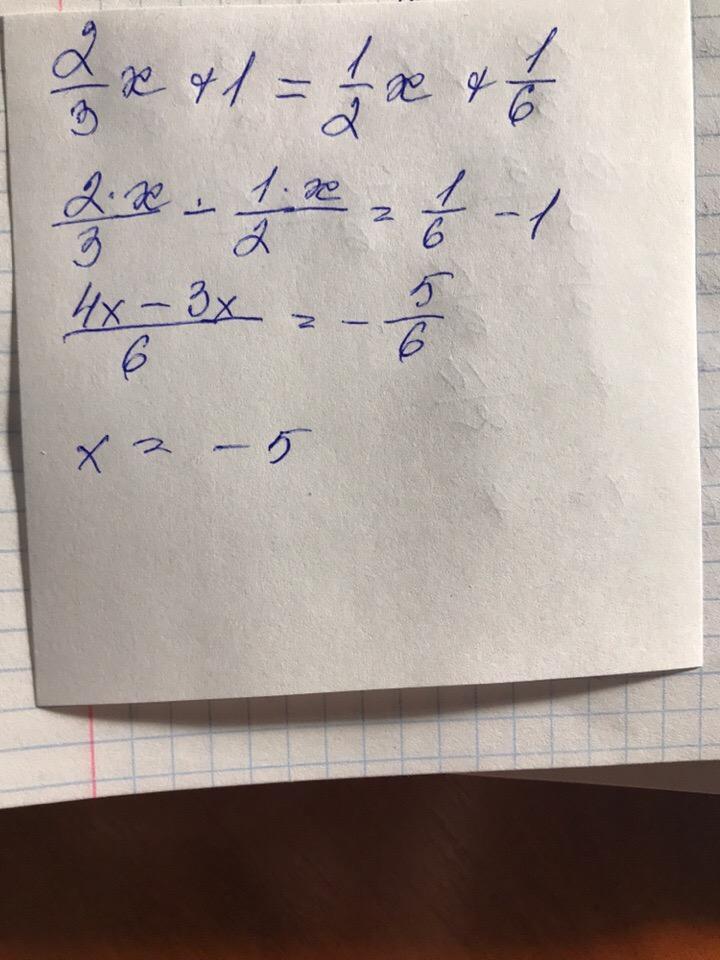 2/3 x + 1 = 1/2 x + 1/6
2·x/3 - 1·x/2 = 1/6 - 1
4x - 3x/6 = - 5/6
x = - 5